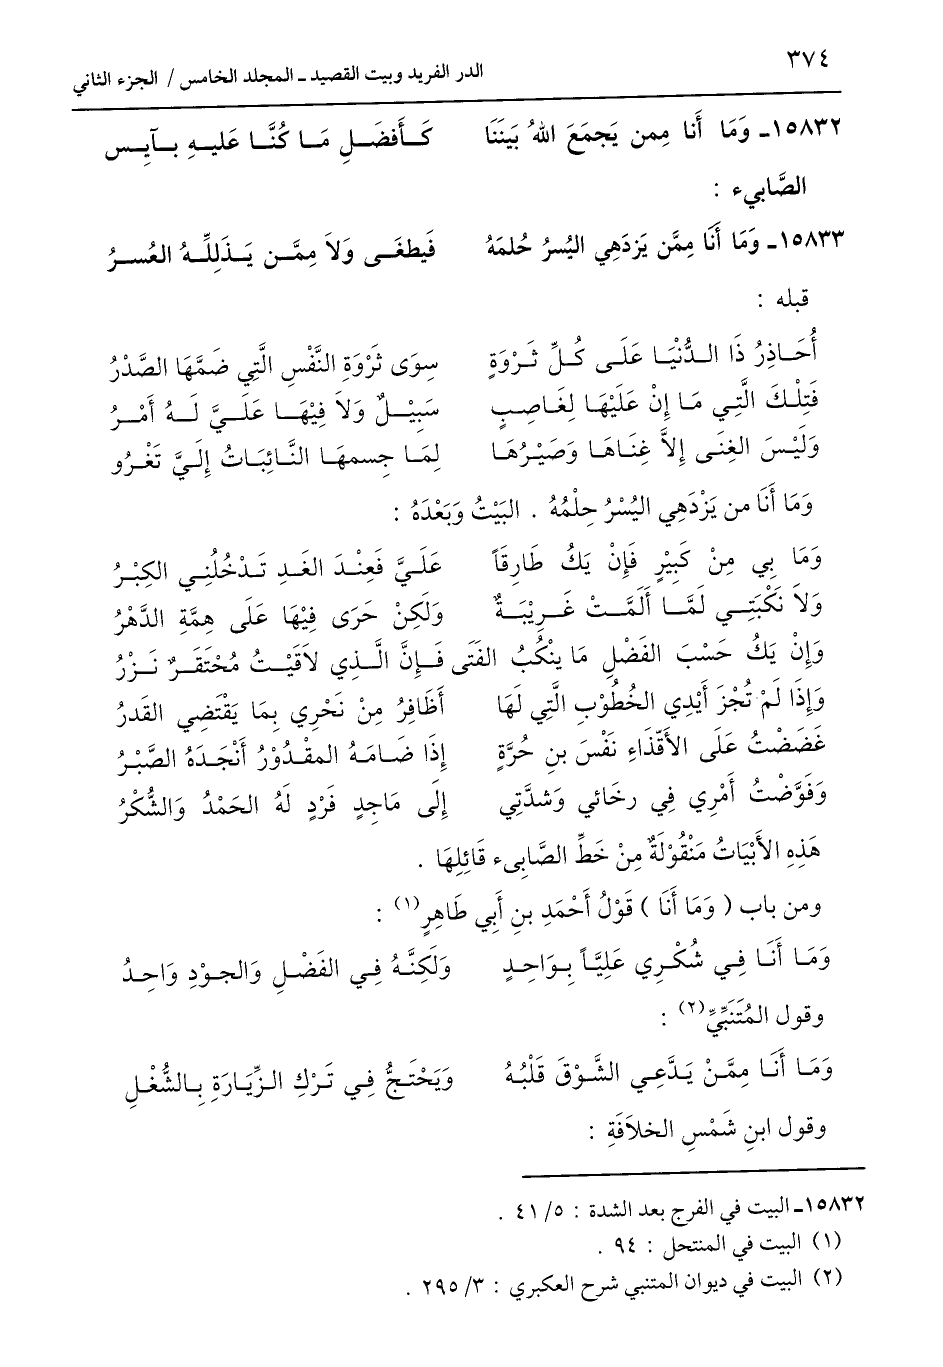 ٣٧٤
الدر الفريد وبيت القصيد ـ المجلد الخامس / الجزء الثاني
١٥٨٣٢ـ وَمَا أَنا مِمن يَجمَعَ اللهُ بَينَنَا كَأَفضَلِ مَا كُنَّا عَليهِ بآيِس
الصَّابيء :
١٥٨٣٣ـ وَمَا أَنَا مِمَّن يَزدَهِي اليُسرُ حُلمَهُ فَيطغَى وَلاَ مِمَّن يَذَلِلَّهُ العُسرُ
قبله :
أُحَاذِرُ ذَا الدُّنْيَا عَلَى كُلِّ ثَرْوَةٍ سِوَى ثَرْوَةِ النَّفْسِ الَّتِي ضَمَّهَا الصَّدْرُ
فَتِلْكَ الَّتِي مَا إِنْ عَلَيْهَا لِغَاصِبٍ سَبِيْلٌ وَلاَ فِيْهَا عَلَيَّ لَهُ أَمْرُ
وَلَيْسَ الغِنَى إِلاَّ غِنَاهَا وَصَيْرُهَا لِمَا جِسمهَا النَّائِبَاتُ إِلَيَّ تَغْرُو
وَمَا أَنَا من يَزْدَهِي اليُسْرُ حِلْمُهُ . البَيْتُ وَبَعْدَهُ :
وَمَا بِي مِنْ كَبِيْرٍ فَإِنْ يَكُ طَارِقَاً عَلَيَّ فَعِنْدَ الغَدِ تَدْخُلُنِي الكِبْرُ
وَلاَ نَكْبَتِي لَمَّا أَلَمَّتْ غَرِيْبَةٌ وَلَكِنْ حَرَى فِيْهَا عَلَى هِمَّةِ الدَّهْرُ
وَإِنْ يَكُ حَسْبَ الفَضْلِ مَا يَنْكِبُ الفَتَى فَإِنَّ الَّذِي لاَقَيْتُ مُحْتَقَرٌ نَزْرُ
وَإِذَا لَمْ تُجْزَ أَيْدِي الخُطُوْبِ الَّتِي لَهَا أَظَافِرُ مِنْ نَحْرِي بِمَا يَقْتَضِي القَدرُ
غَضَضْتُ عَلَى الأَقْذَاءِ نَفْسَ بن حُرَّةٍ إِذَا ضَامَهُ المقْدُوْرُ أَنْجَدَهُ الصَّبْرُ
وَفَوَّضْتُ أَمْرِي فِي رخَائي وَشدَّتِي إِلَى مَاجِدٍ فَرْدٍ لَهُ الحَمْدُ وَالشُّكْرُ
هَذِهِ الأَبْيَاتُ مَنْقُوْلَةٌ مِنْ خَطِّ الصَّابِىء قَائِلِهَا .
ومن باب ( وَمَا أَنَا ) قَوْلُ أَحْمَدِ بن أَبِي طَاهِرٍ(١) :
وَمَا أَنَا فِي شُكْرِي عَلِيَّاً بِوَاحِدٍ وَلَكِنَّهُ فِي الفَضْلِ وَالجوْدِ وَاحِدُ
وقول المُتَنَبِّيِّ(٢) :
وَمَا أَنَا مِمَّنْ يَدَّعِي الشَّوْقَ قَلْبُهُ وَيَحْتَجُّ فِي تَركِ الزِّيَارَةِ بِالشُّغْلِ
وقول ابنِ شَمْسِ الخلاَفَةِ :
١٥٨٣٢ـ البيت في الفرج بعد الشدة : ٥/ ٤١ .
(١) البيت في المنتحل : ٩٤ .
(٢) البيت في ديوان المتنبي شرح العكبري : ٣/ ٢٩٥ .